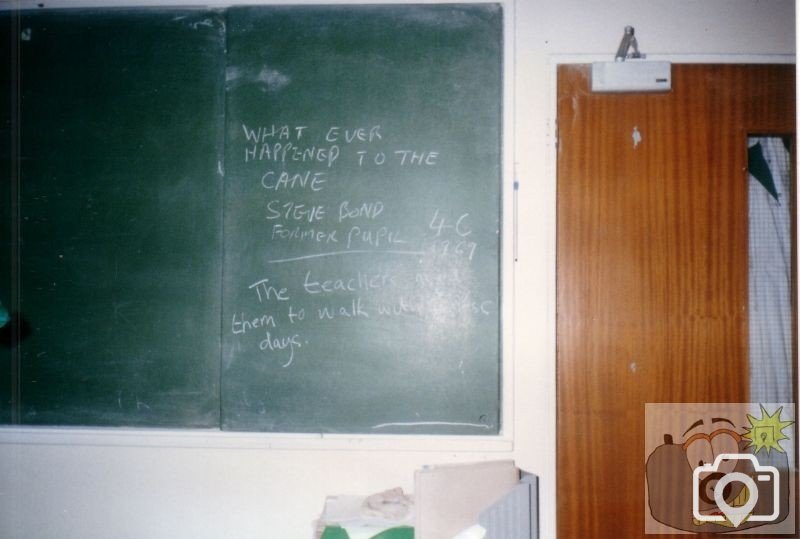 WHAT EVER
HAPPENED TO THE
CANE
STEVE BOND
FORMER PUPIL 4C
1969
The teachers
them to walk with
days.